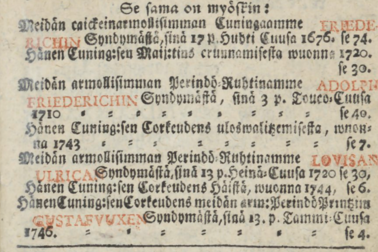 Se sama on myöskin:
Meidän caickeinarmollisimman Cuningaamme FRIEDE-
RICHIN Syndymästä, sinä 17 p. Huhti Cuusa 1676. se 74.
Hänen Cuning:sen Maij:tins cruunamisesta wuonna 1720.
se 30.
Meidän armollisimman Perindö-Ruhtinamme ADOLPH
FRIEDERICHIN Syndymästä, sinä 3 p. Touco-Cuusa
1710 - - - - - - se 40.
Hänen Cuning:sen Corkeudens uloswalitzemisesta, wuon-
na 1743 - - - - - - se 7.
Meidän armollisimman Perindö-Ruhtinamme LOVISAN
ULRICAN Syndymästä, sinä 13 p. Heinä-Cuusa 1720 se 30,
Hänen Cuning:sen Corkeudens Häistä, wuonna 1744, se 6.
Hänen Cuning:sen Corkeudens meidän arm: Perindö Printzim
GUSTAFVUXEN Syndymästä, sinä 13. p. Tammi-Cuusa
1746. - - - - - - se 4.